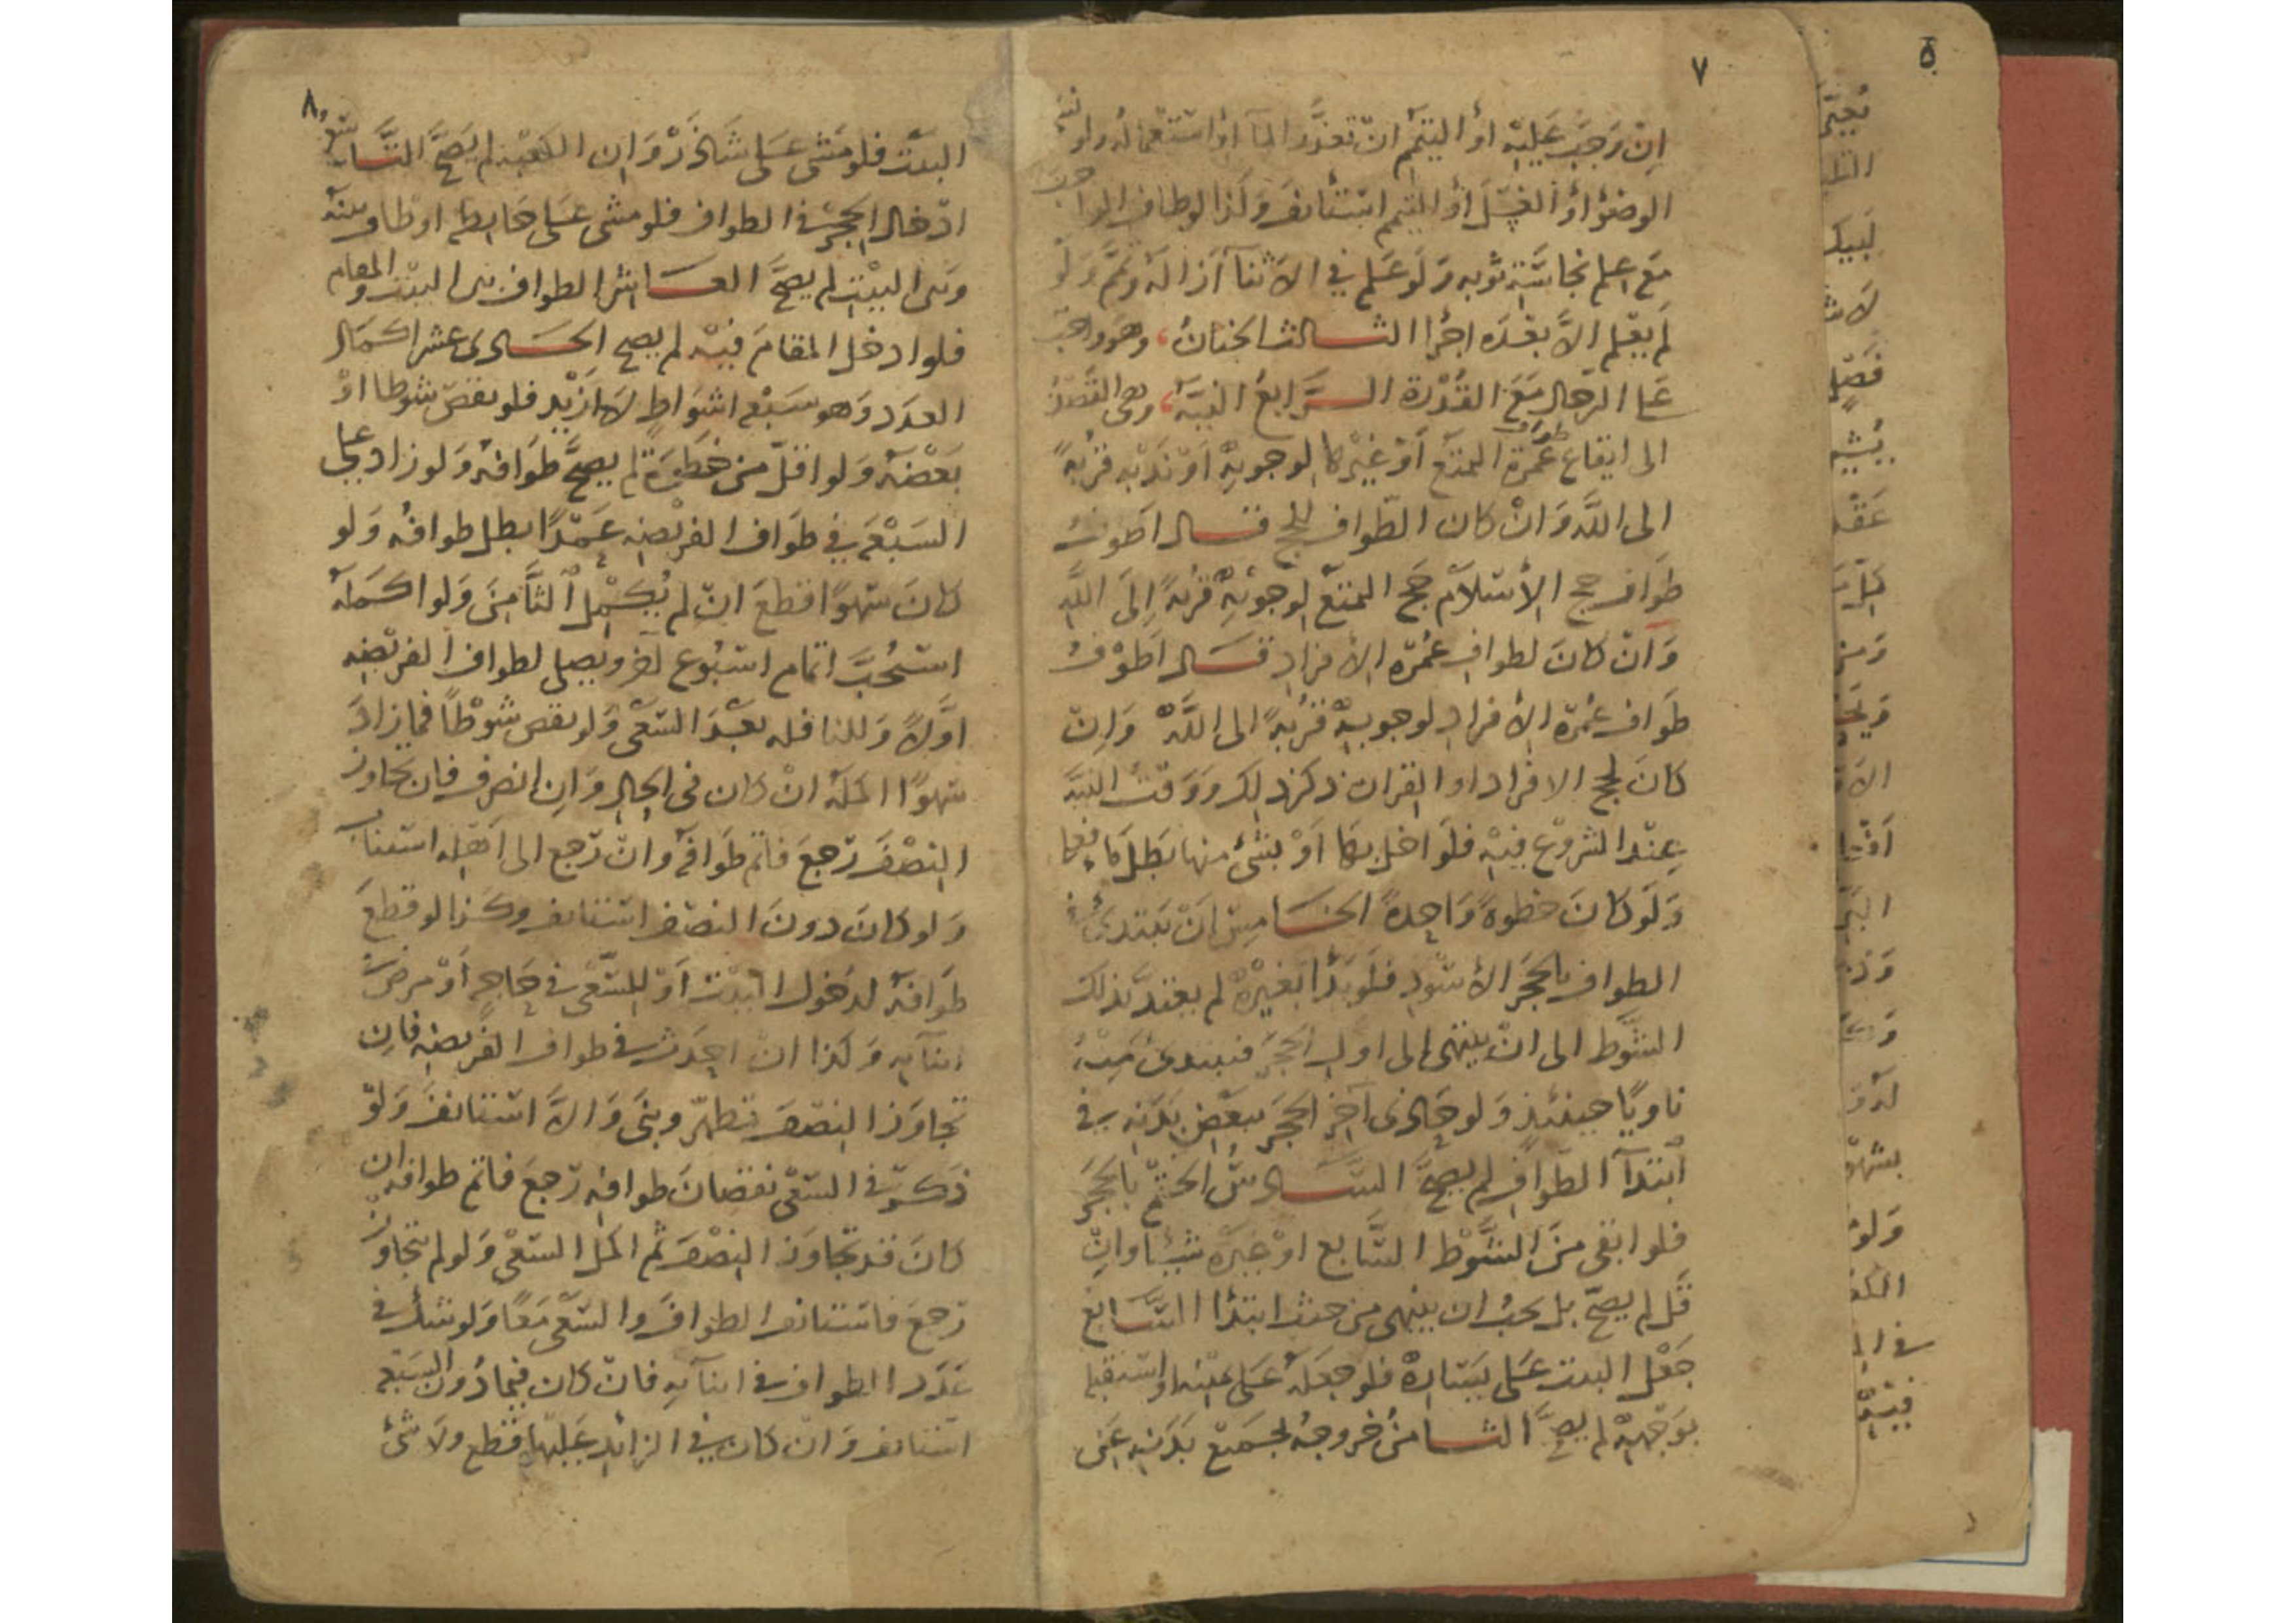 ٧
اِنْ وَجَبَ عَلَيْهِ اَوْ التيَمّم انْ تعَذَّر المآ اوْ استعماله ولو نسَى
الوضوُ اوْ الغسْلَ اوْ التيمم اسْتأنفَ وَكَذا لو طاف الواجبَ
مَع عِلم نجاسَة ثوبه وَلَو عَلم في الاثنآ اَزَالهُ وَتمَّ وَلَوْ
لَم يعْلم الاَّ بَعْدَه اجْزا الثالث الختانُ، وهَو واجب
عَلى الرّجال مَعَ القُدْرة الرَّابعُ النيَّة، وهى القَصْدُ
الى ايقاع طواف عُمرَة التمتّع اَوْ غَيْرهَا لوجوبِهْ اوْ نَدْبِهْ قُرْبةً
الى اللَّه وَانْ كان الطّواف للحج قال اَطوفُ
طَوَاف حج الاْسْلاَم حَج التمتع لوجوبِهْ قُرْبةً اِلَى اللَّهِ
وَانْ كانَ لطوافِ عُمْرَة الاْفرادِ قال اَطوْفُ
طَوَاف عُمْرَة الاْفرادِ لوجوبِهْ قُرْبةً الى اللَّهْ وَاِنْ
كانَ لحج الافراد او القران ذكرَ ذلك وَوَقْتُ النيَّة
عِنْدَ الشروْع فيْهِ فلَو اخل بهَا اَوْ بشَئ منها بَطل مَا فعَل
وَلَوْ كانَ خطوةً وَاحِدةً الخامِسُ انْ يَبتدئ في
الطواف بالحَجَر الاْسْودِ فلَو بَدَا بغَيْرهْ لم يعْتدَّ بذلك
الشَّوط الى انْ ينتهى الى اوّل الحجَر فيبتدئ مِنْهُ
ناويًا حينئذٍ وَلو حَاذى آخِرَ الحَجَر ببَعْض بَدَنِهِ في
اْبْتدَآ الطّوَافِ لم يصحَّ السَّادسُ الختْم بالحَجَر
فلو ابْقى منَ الشَّوْط السَّابع اوْ غَيْرهْ شَيْئًا وانْ
قَلَّ لم يصحّ بل يجبُ ان ينتهى من حيث ابتدَا السَّابع
جَعْل البيت عَلى يَسَارهْ فلو جعَلهُ عَلى يمينه او استقبله
بوَجْههْ لم يصحَّ الثامنُ خروجهُ بجميْع بَدَنِهِ عَنِ
٨
البيْت فلو مَشى عَلى شَاذَرْوَانِ الكعْبة لم يَصحَّ التَّاسعُ
ادْخال الحِجْر فى الطواف فلو مشى عَلى حَايطه او طاف بينهُ
وبَين البيْتِ لم يصحَّ العَاشرُ الطواف بين البيْت والمقام
فلو ادخل المقامَ فيْه لم يصح الحَادى عشر اكمال
العدَد وَهو سَبْعه اشوَاطٍ لاَ اَزْيَد فلو نقصَ شوطا اوْ
بَعْضَهُ وَلو اقلّ من خطوَة لم يصحَّ طَوَافهُ وَلو زادَ على
السَّبْعَه في طَوَاف الفريْضه عَمْدًا بطل طوافهُ وَلو
كانَ سَهوًا قطعَ انْ لم يُكْملْ الثَّامِنَ وَلو اكمَلَهُ
استُحبَّ اتمام اسْبُوع آخر ويصلى لطواف الفريْضه
اوَّلاً وَللنافله بَعْدَ السّعْى وَلو نقص شوْطاً فما زادَ
سَهوًا اكملهُ انْ كان فى الحالِ وَانِ انصرف فان تجاوز
النِصْفَ رَجعَ فاتم طوَافهُ وانْ رَجع الى اهْلِه استناب
وَلو كانَ دونَ النصْف استأنف وكذا لو قطعَ
طوَافهُ لدخول البيْت اَوْ للسَّعْى في حَاجةٍ اَوْ مرضَ في
اثنآيه وَكذا ان احدَث في طواف الفريضه فاِن
تجاوَز النصْفَ تطهّر وبنى وَالاَّ استأنفَ وَلَوْ
ذكرَ في السّعْى نقصانَ طوافِه رَجعَ فاتم طوافه ان
كانَ قد تجاوَز النِصْفَ ثم اكمل السّعْى وَلو لم يتجاوز
رَجعَ فاستأنف الطوافَ والسّعْى مَعًا وَلو شكَّ في
عَدَد الطواف في اثنآيه فانْ كان فيمَا دُونَ السَّبْعه
استأنف وَانْ كان في الزائدِ عَليْهَا قطع ولاَ شئ
٥